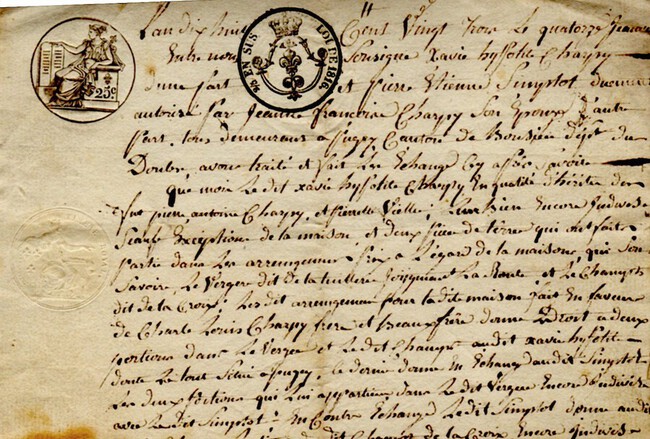 25 c
95 EN SUS LOI DE 1816.
L'an dix huit Cent Vingt trois Le quatorze
Entre nous Soussigné xavie hyPolitte Charpy
d'une part et pierre Etienne Simplot
autorisé Par Jeanne francoise Charpy Son Epouse d'autre
Part, tous demeurant a Pugey Canton de Boussiere dépt du
Doubs, avons traité et fait Les Echange Cy après Savoir
que moi Ledit xavie hyPolitte Charpy En qualité d'héritie des
pierre antoine Charpy, et pierrette Vielle, Encore Indivise
Exceptions de la maison, et deux piece de terre qui ont faites
Partie dans Les arrengement fixe a L'égard de la maison, qui Son
Savoire Le Verger dit de la tuillerie Joignant La Route, et Le Champ
dit de la Croix, Lesdit arrengement Pour Ladite maison fait En faveur
de Charle Louis Charpy frere et Beaux frere donne Droit a deux
portions dans Le Verger et Ledit Champ audit xavie hyPolitte
dont Le tout Situé a pugey, Le dernie donne En Echange audit Simplot
Les deux Portions qui Lui appartiene dans Ledit Verger Encore Indivise
avec Ledit Simplot, En Contre Echange Ledit Simplot donne audit
dit Champ de la Croix Encore Indivise